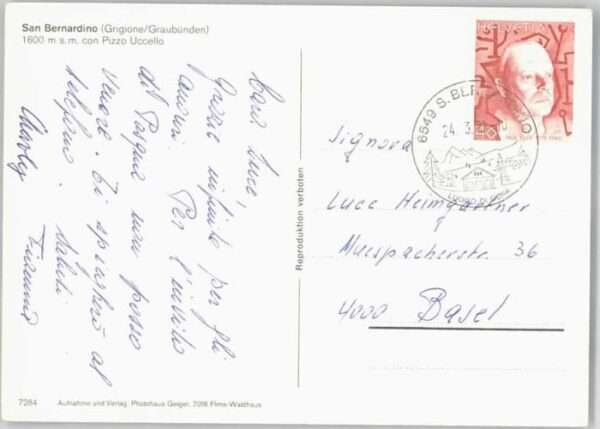 San Bernardino (Grigione/Graubünden)
1600 m s.m. con Pizzo Uccello
Cara Luce,
Grazie infinite per gli
auguri. Per l'invito
di Pasqua non posso
venire. Ti spiegherò al
telefono. Saluti
Reproduktion verboten
HELVETIA
6549 S. BERNARDINO
24. 3.
Signora
Luce Heimgartner
Muespacherstr. 36
4000 Basel
7284 Aufnahme und Verlag: Photohaus Geiger, 7018 Flims-Waldhaus